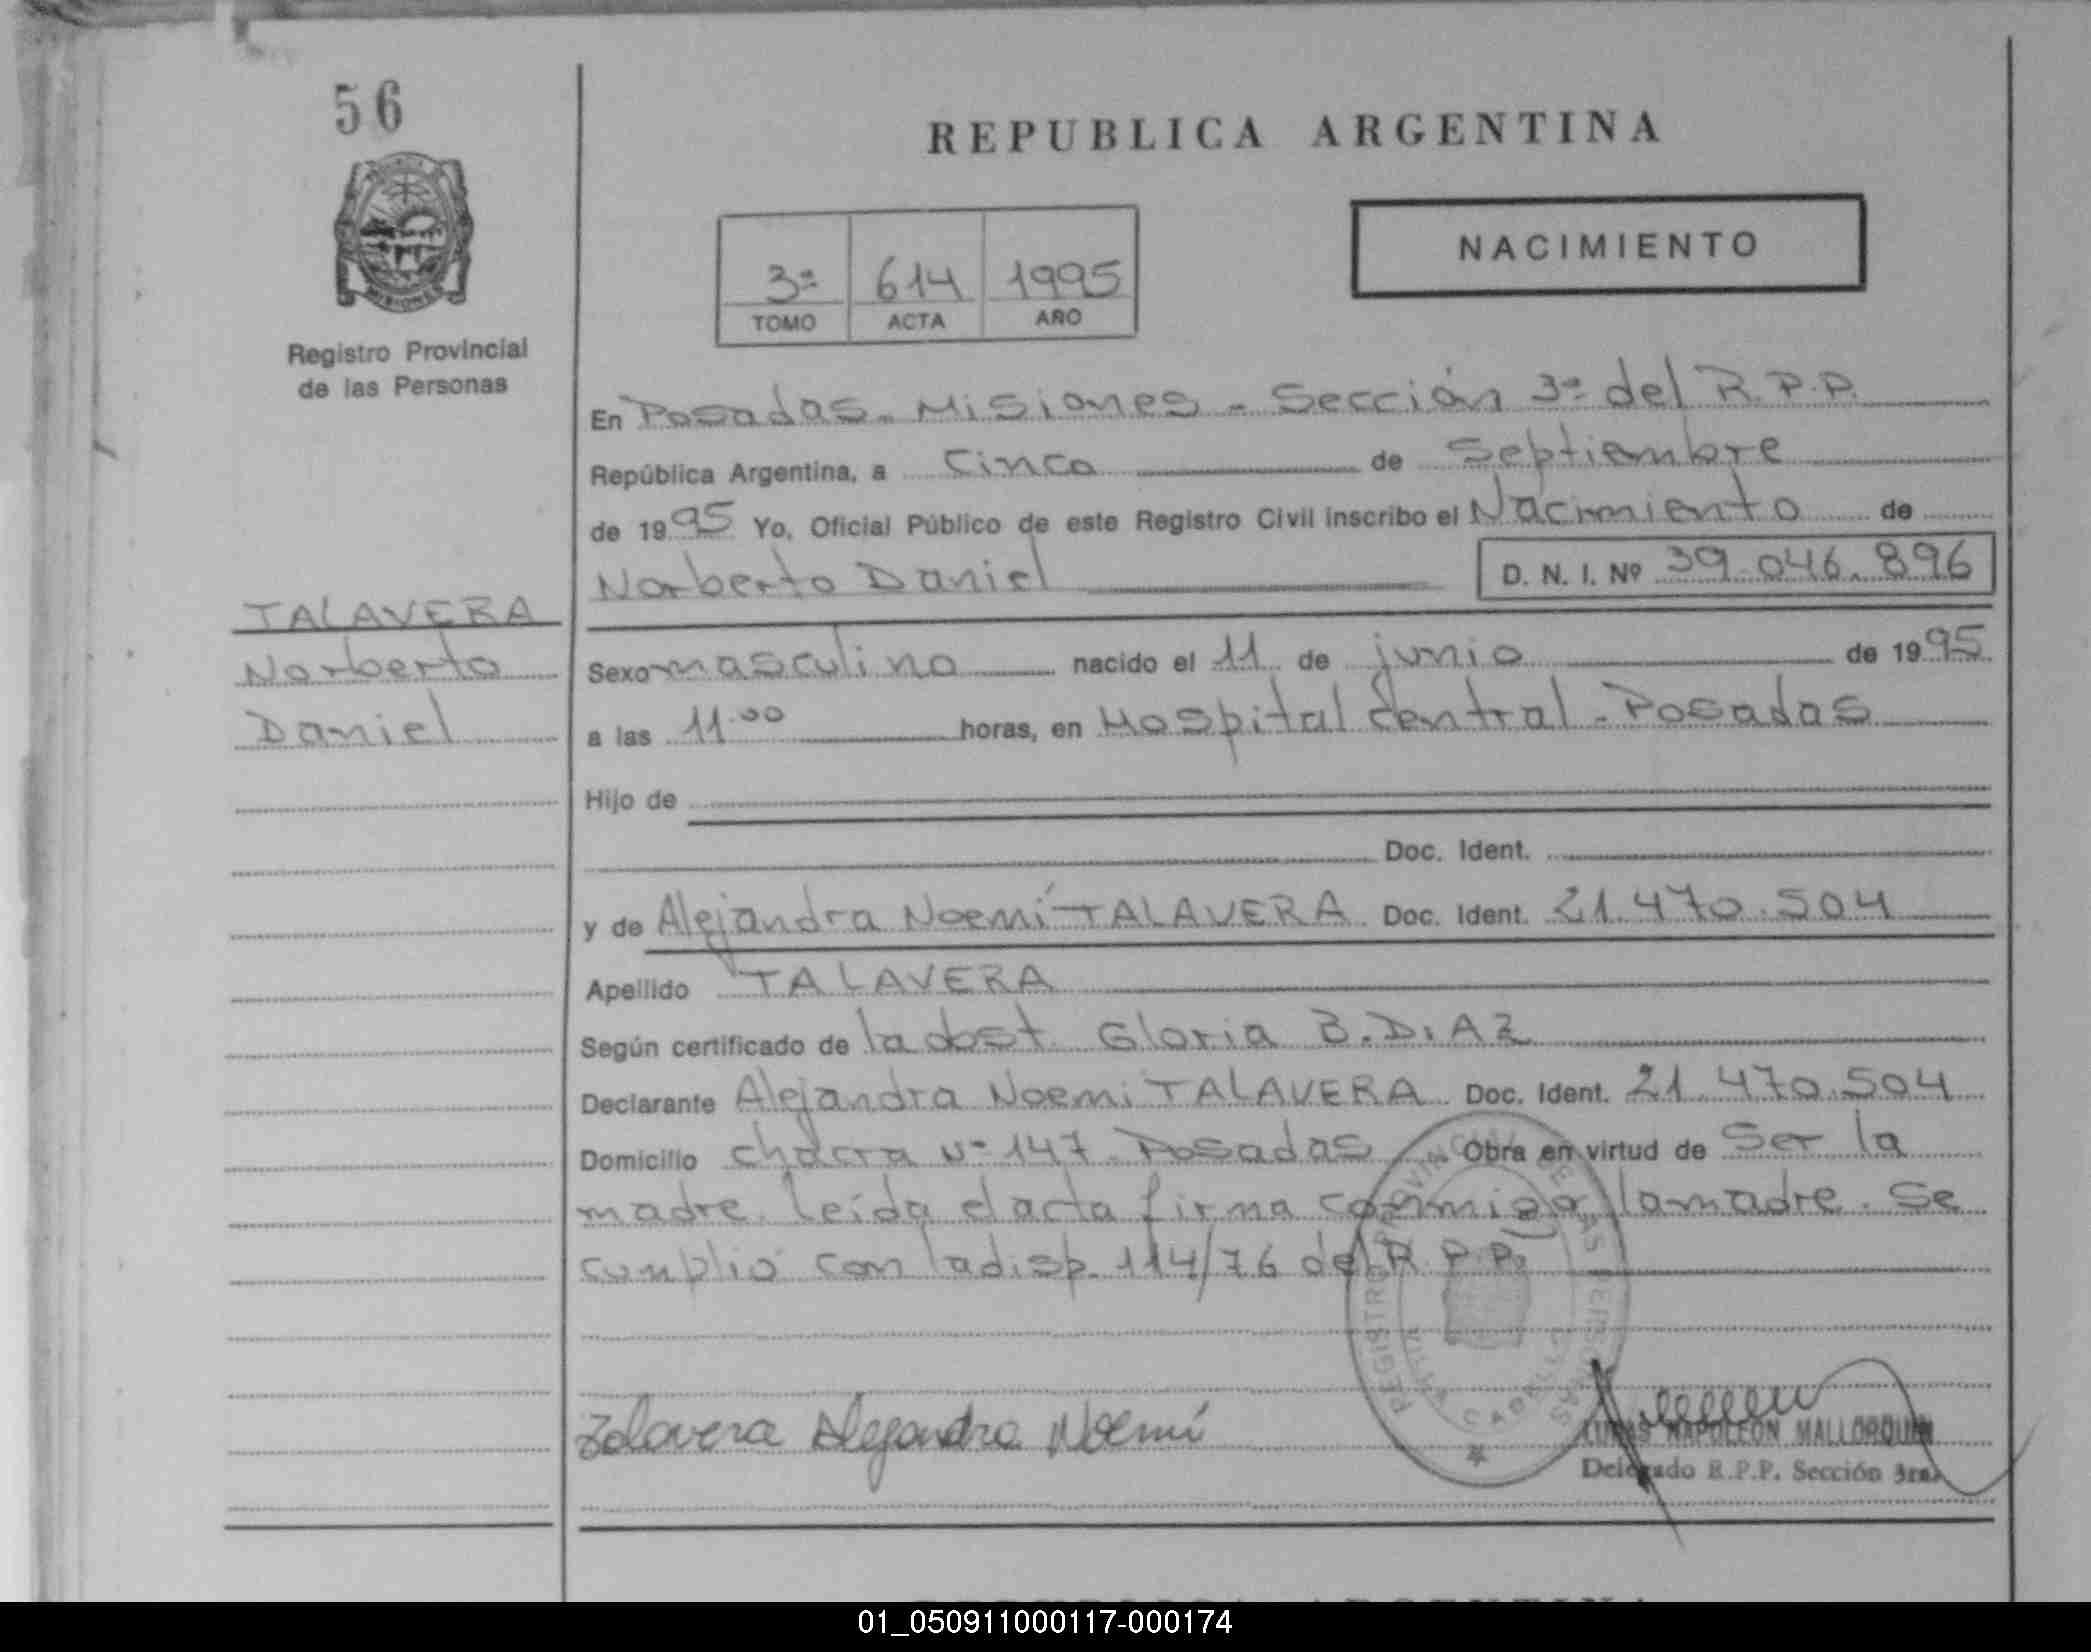 56
REPUBLICA ARGENTINA
NACIMIENTO
3ª 614 1995
TOMO ACTA AÑO
MISIONES
Registro Provincial
de las Personas
En Posadas - Misiones - Sección 3ª del R.P.P.
República Argentina, a Cinco de Septiembre
de 1995 Yo, Oficial Público de este Registro Civil inscribo el Nacimiento de
Norberto Daniel D. N. I. Nº 39.046.896
TALAVERA
Norberto
Daniel
Sexo masculino nacido el 11 de junio de 1995
a las 11.00 horas, en Hospital Central - Posadas
Hijo de
Doc. Ident.
y de Alejandra Noemí TALAVERA Doc. Ident. 21.470.504
Apellido TALAVERA
Según certificado de la obst. Gloria B. DIAZ
Declarante Alejandra Noemi TALAVERA Doc. Ident. 21.470.504
Domicilio chacra Nº 147 - Posadas Obra en virtud de Ser la
madre. leída el acta firma conmigo la madre. Se
cumplió con la disp. 114/76 del R.P.P.
REGISTRO PROVINCIAL DE LAS PERSONAS
Talavera Alejandra Noemí
LUCAS NAPOLEON MALLORQUIN
Delegado R.P.P. Sección 3ra.
01_050911000117-000174